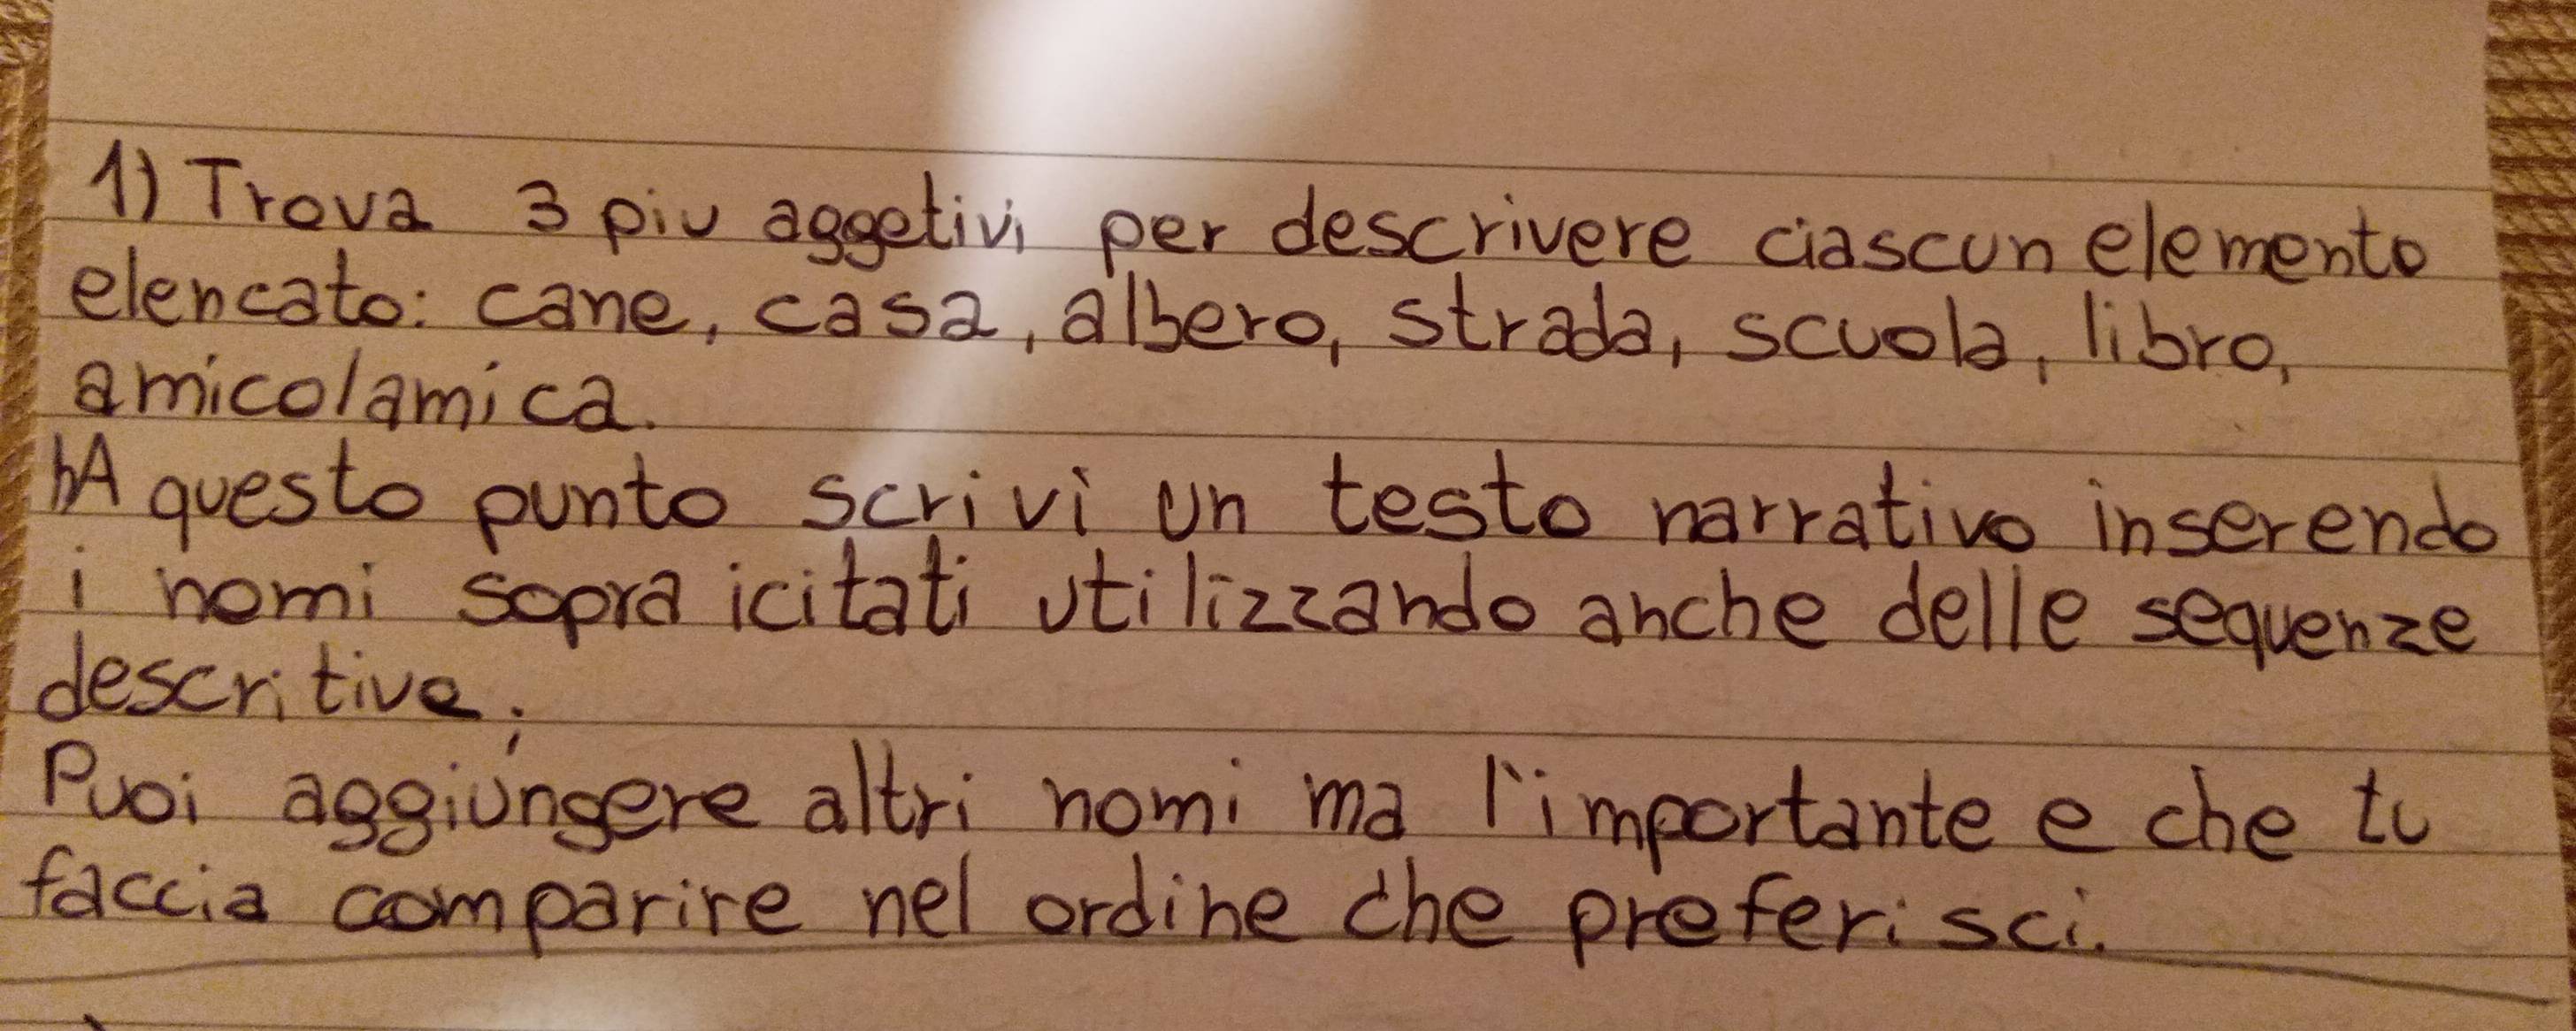 1) Trova 3 piu aggetivi per descrivere ciascun elemento
elencato: cane, casa, albero, strada, scuola, libro,
amico/amica.
b)A questo punto scrivi un testo narrativo inserendo
i nomi sopra icitati utilizzando anche delle sequenze
descritive.
Puoi aggiungere altri nomi ma l'importante e che tu
faccia comparire nel ordine che preferisci.